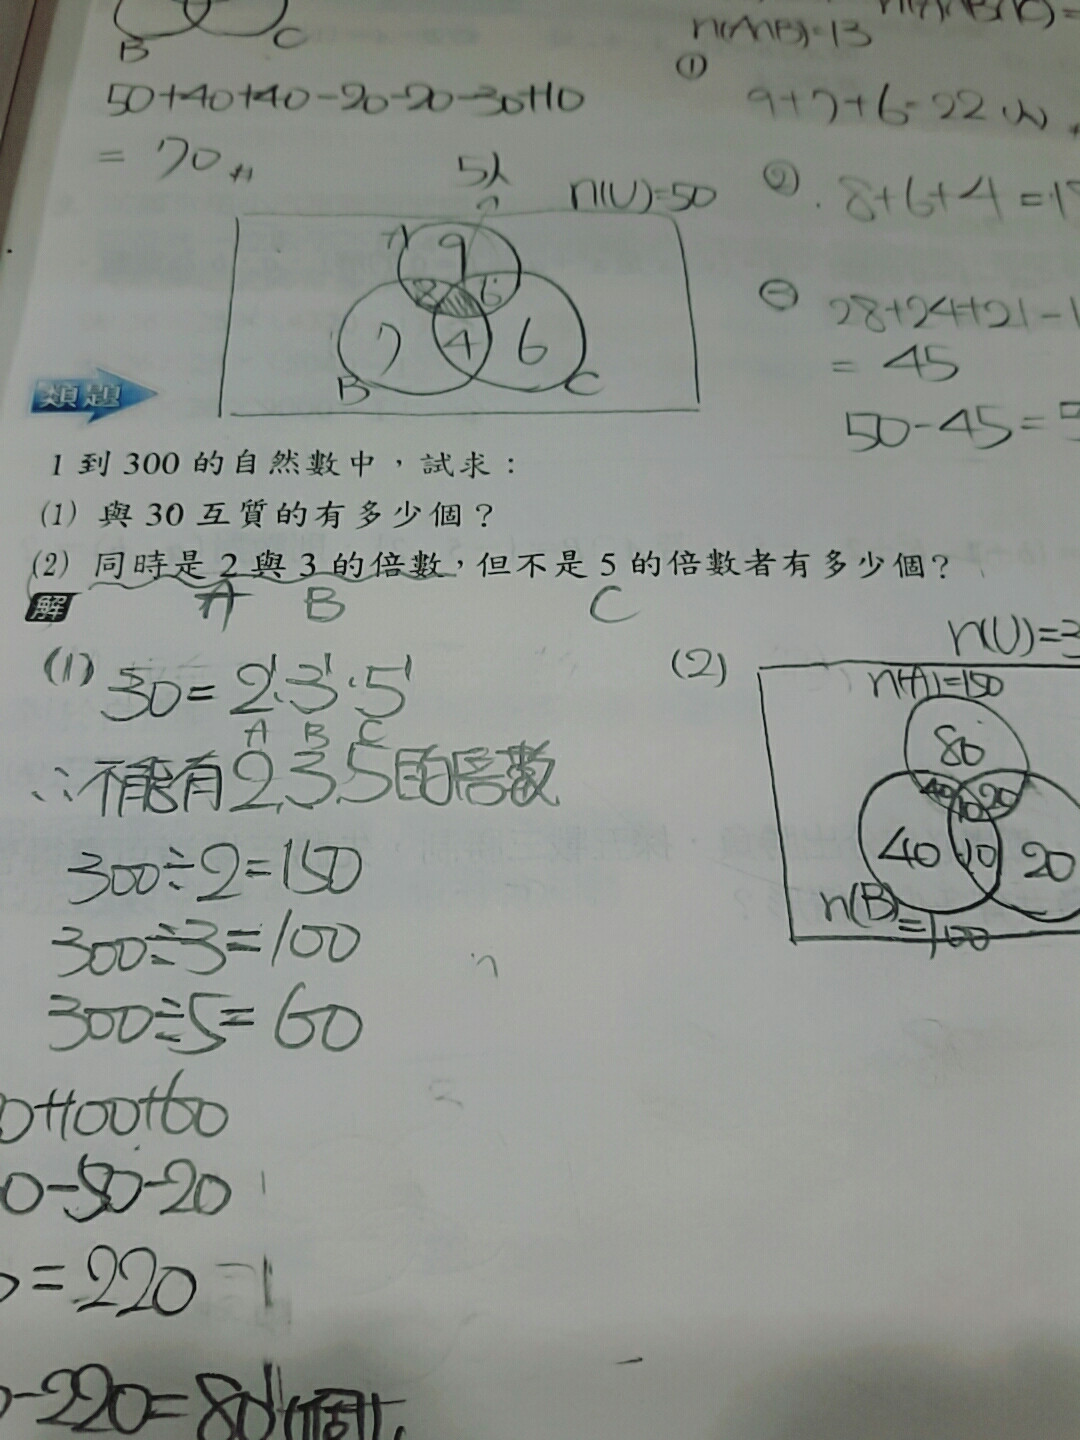 B C
n(A∩B)=13
50+40+40-20-20-30+10
= 70
①
9+7+6=22(人)
5人
n(U)=50
②
8+6+4=18
A 9
8 6
7 4 6
B C
28+24+21-1
= 45
50-45=5
類題
1 到 300 的自然數中,試求:
(1) 與 30 互質的有多少個?
(2) 同時是 2 與 3 的倍數,但不是 5 的倍數者有多少個?
解
A B C
(1) 30=2¹·3¹·5¹
A B C
∴不能有2,3,5的倍數
300÷2=150
300÷3=100
300÷5=60
0+100+60
0-50-20
=220
-220=80(個)
(2)
n(U)=3
n(A)=150
80
40 10 20
40 10 20
n(B)
=100